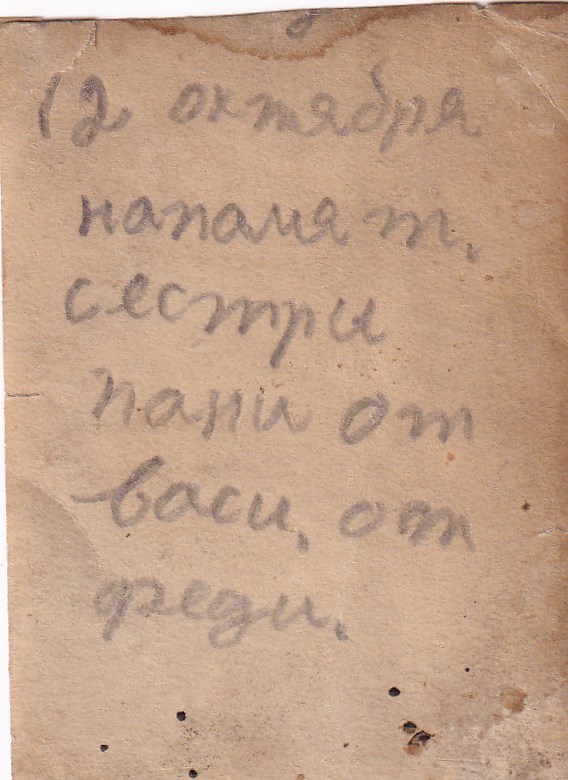 12 октября
напамят.
сестри
пани от
васи, от
феди.